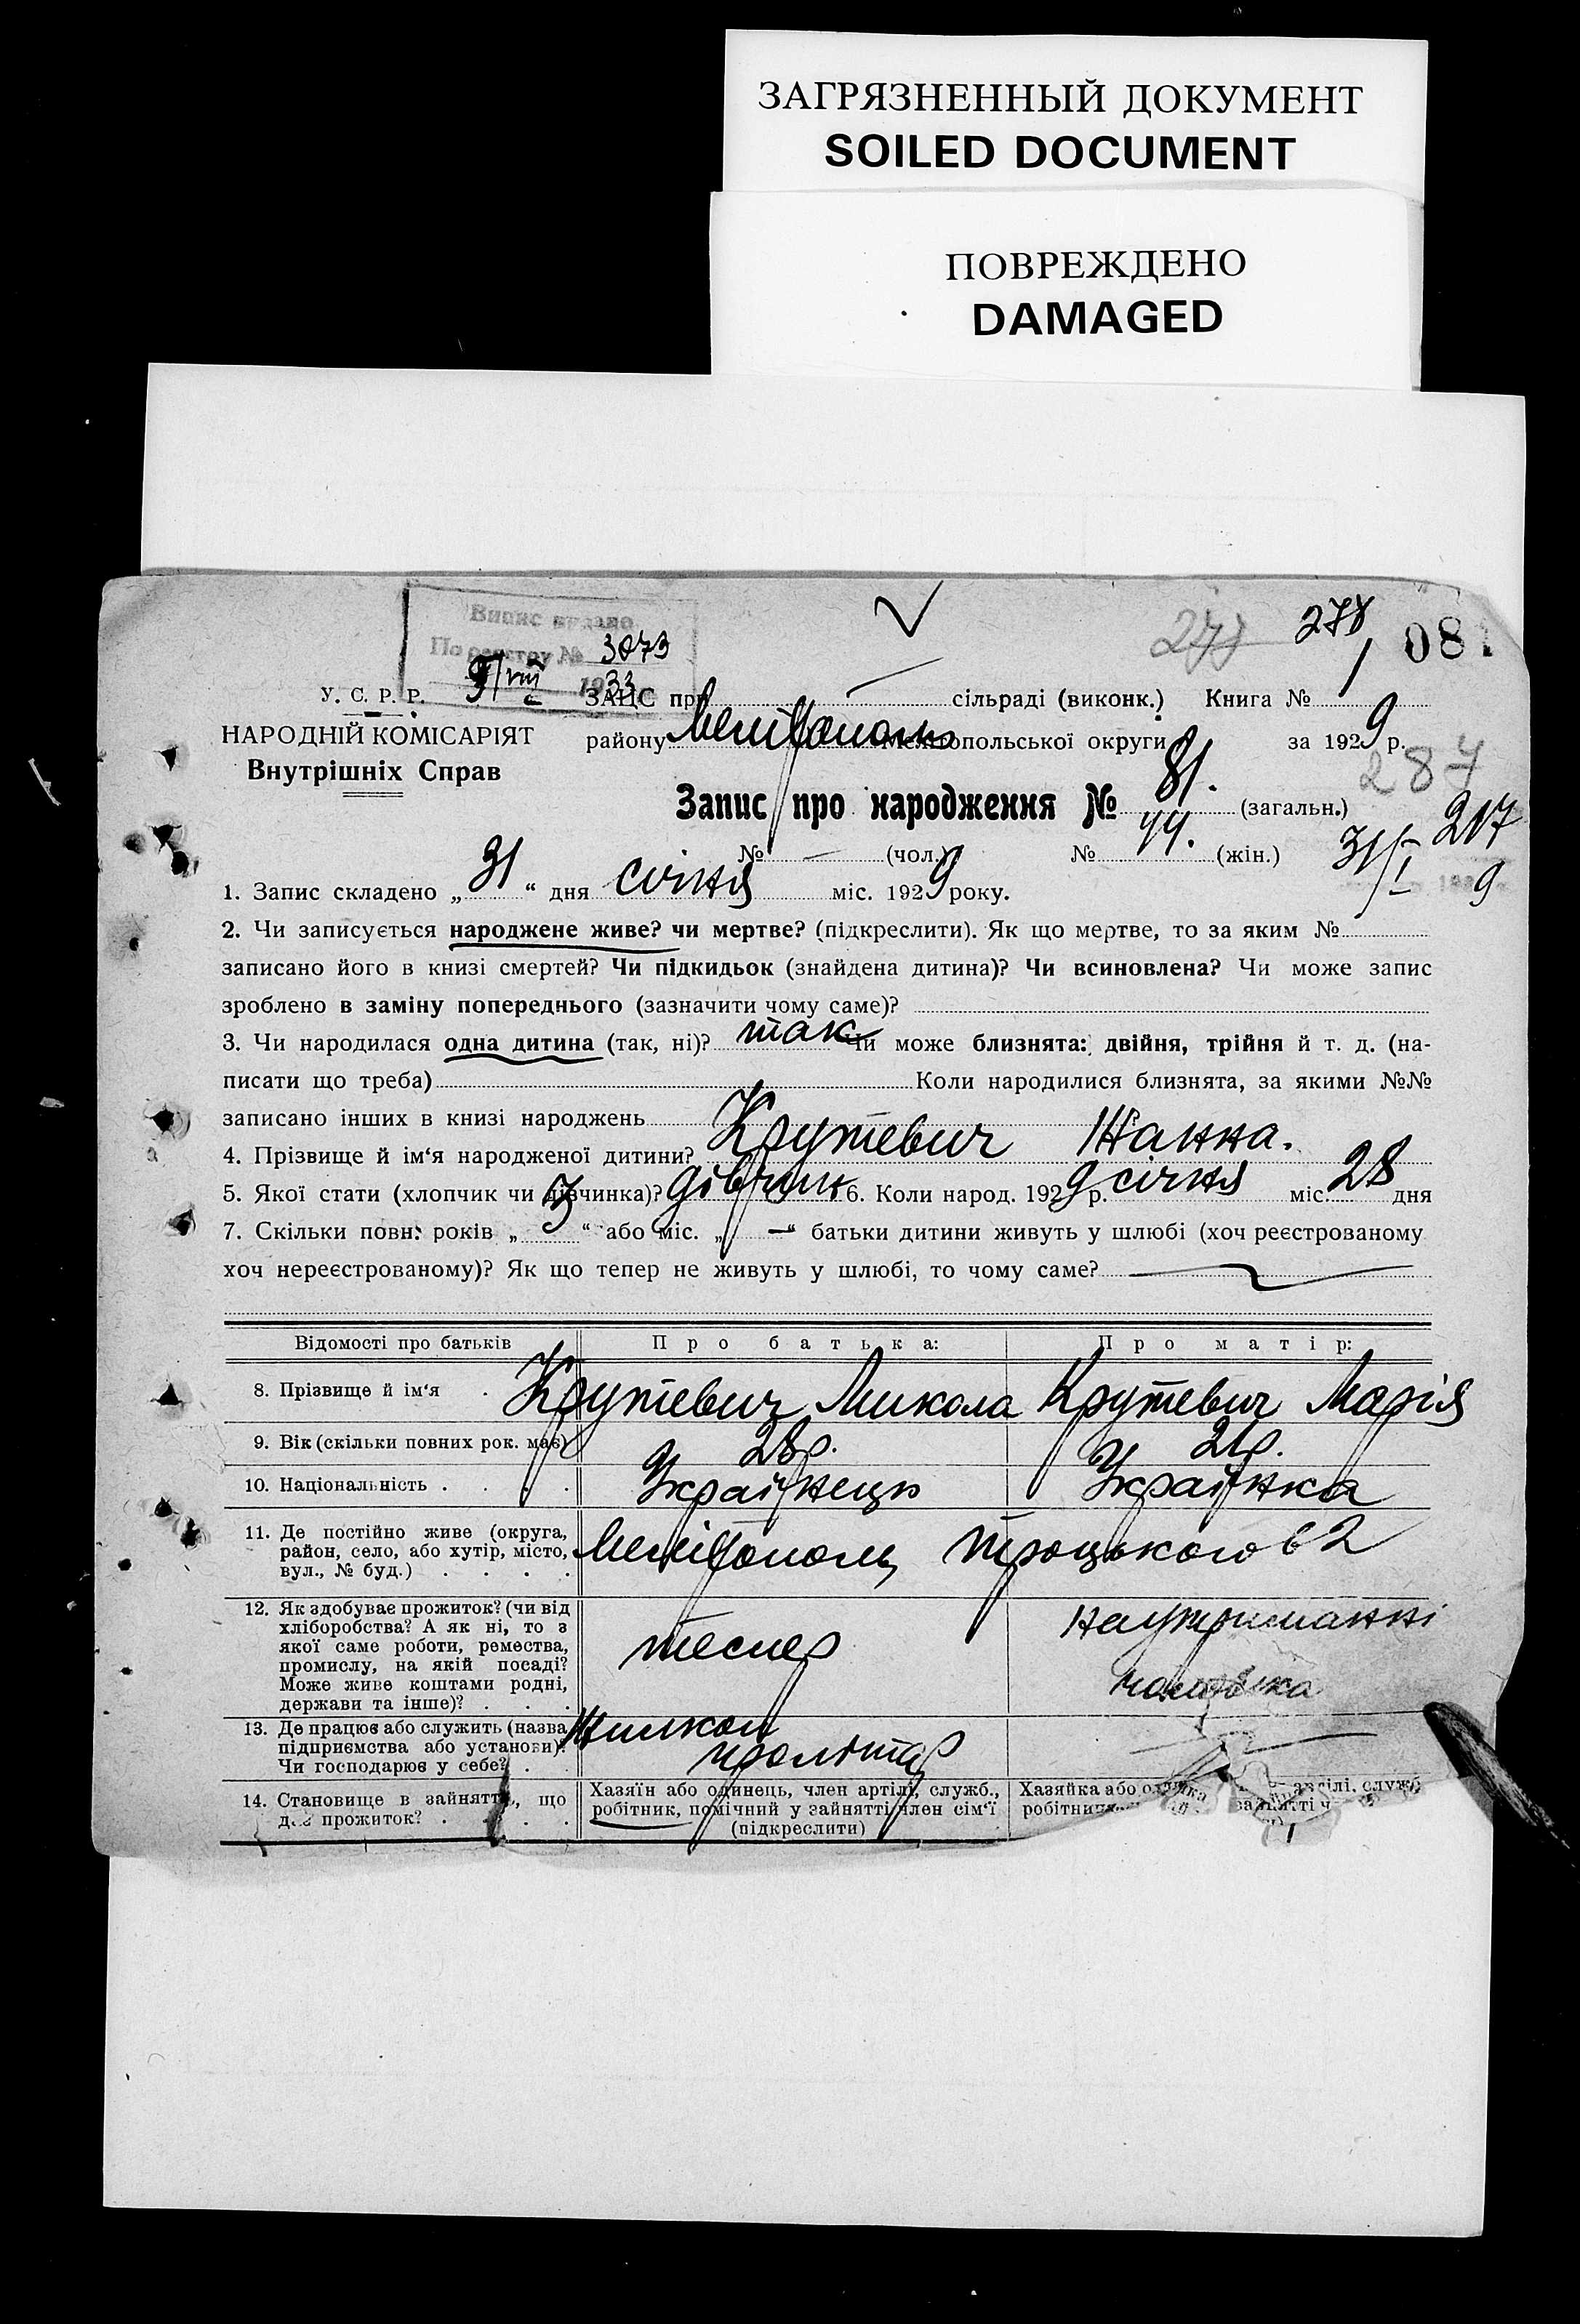 ЗАГРЯЗНЕННЫЙ ДОКУМЕНТ
SOILED DOCUMENT
ПОВРЕЖДЕНО
DAMAGED
Випис видано
По реєстру № 3073
1933
278
081
У. С. Р. Р.
ЗАЦС при сільраді (виконк.) Книга № 1
НАРОДНІЙ КОМІСАРІЯТ
району Мелітополь Мелітопольської округи за 1929 р.
Внутрішніх Справ
287
Запис про народження № 81. (загальн.)
217
№ — (чол.) № 44. (жін.)
31/I 9
1. Запис складено „31“ дня січня міс. 1929 року.
2. Чи записується народжене живе? чи мертве? (підкреслити). Як що мертве, то за яким №
записано його в книзі смертей? Чи підкидьок (знайдена дитина)? Чи всиновлена? Чи може запис
зроблено в заміну попереднього (зазначити чому саме)?
3. Чи народилася одна дитина (так, ні)? так Чи може близнята: двійня, трійня й т. д. (на-
писати що треба) Коли народилися близнята, за якими №№
записано інших в книзі народжень
4. Прізвище й ім‘я народженої дитини? Крутевич Жанна.
5. Якої стати (хлопчик чи дівчинка)? дівчин 6. Коли народ. 1929 р. січня міс. 28 дня
7. Скільки повн. років „3“ або міс. „—“ батьки дитини живуть у шлюбі (хоч реєстрованому
хоч нереєстрованому)? Як що тепер не живуть у шлюбі, то чому саме?
Відомості про батьків Про батька: Про матір:
8. Прізвище й ім‘я Крутевич Микола Крутевич Марія
9. Вік (скільки повних рок. має) 28р. 21р.
10. Національність Українець Українка
11. Де постійно живе (округа,
район, село, або хутір, місто,
вул., № буд.) Мелітополь Троцького 62
12. Як здобуває прожиток? (чи від
хліборобства? А як ні, то з
якої саме роботи, ремества,
промислу, на якій посаді?
Може живе коштами родні,
держави та інше)? тесляр на утриманні
чоловіка
13. Де працює або служить (назва
підприємства або установи)?
Чи господарює у себе? Жилкоп
пролітар
14. Становище в зайнятті, що
дає прожиток?
Хазяїн або одинець, член артілі, служб.,
робітник, помічний у зайнятті член сім‘ї
(підкреслити)
Хазяйка або
артілі, служб.
зайнятті